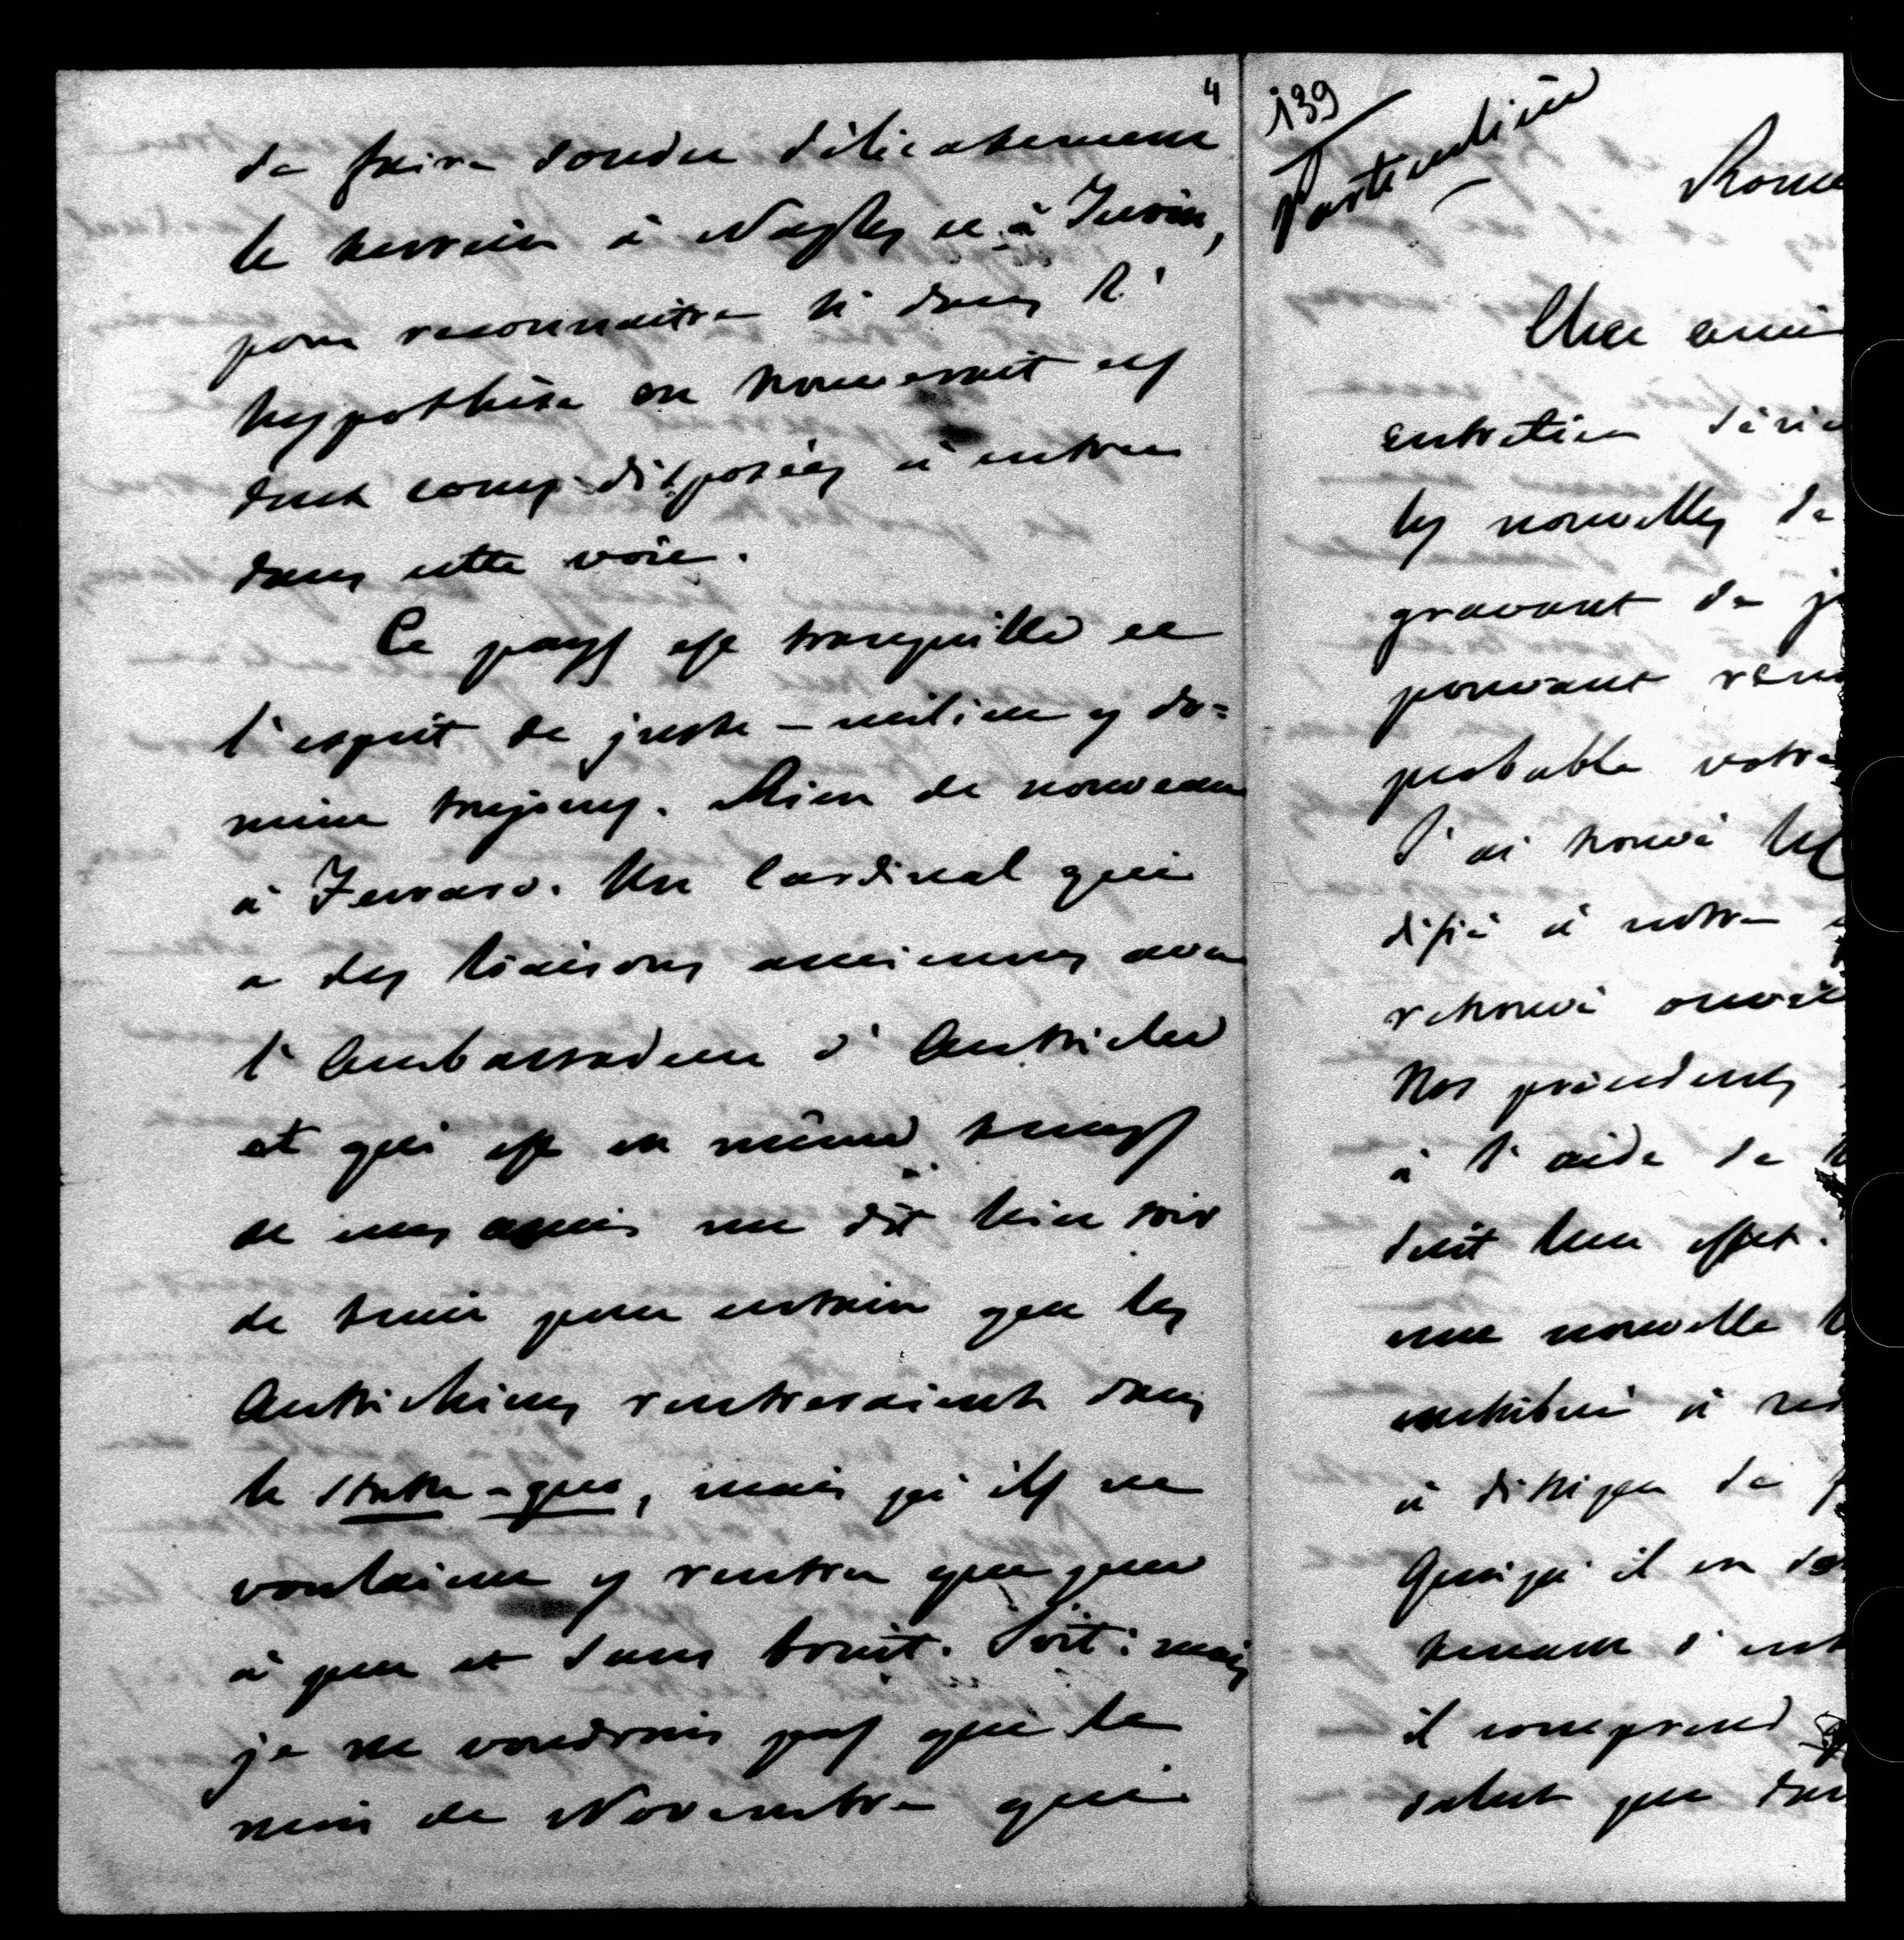 4
de faire sonder délicatement
le terrein à Naples et à Turin,
pour reconnaitre si dans l'
hypothèse on trouverait ces
deux cours disposées à entrer
dans cette voie.
Ce pays est tranquille et
l'esprit de juste-milieu y do=
mine toujours. Rien de nouveau
à Ferrare. Un Cardinal qui
a des liaisons anciennes avec
l'Ambassadeur d'Autriche
et qui est en même temps
de mes amis me dit hier soir
de tenir pour certain que les
Autrichiens rentreraient dans
le statu-quo, mais qu'ils ne
voulaient y rentrer que peu
à peu et sans bruit. Soit: mais
je ne voudrais pas que le
mois de Novembre qui
139
Particulière
Rome
Cher ami
entretien
les nouvelles de
gravant de
pouvant
probable votre
J'ai trouvé
à notre
retrouvé
Nos précédents
à l'aide de
duit leur effet.
une nouvelle
contribué à
à dissiper
Quoiqu'il en
tenant
il comprend
salut que